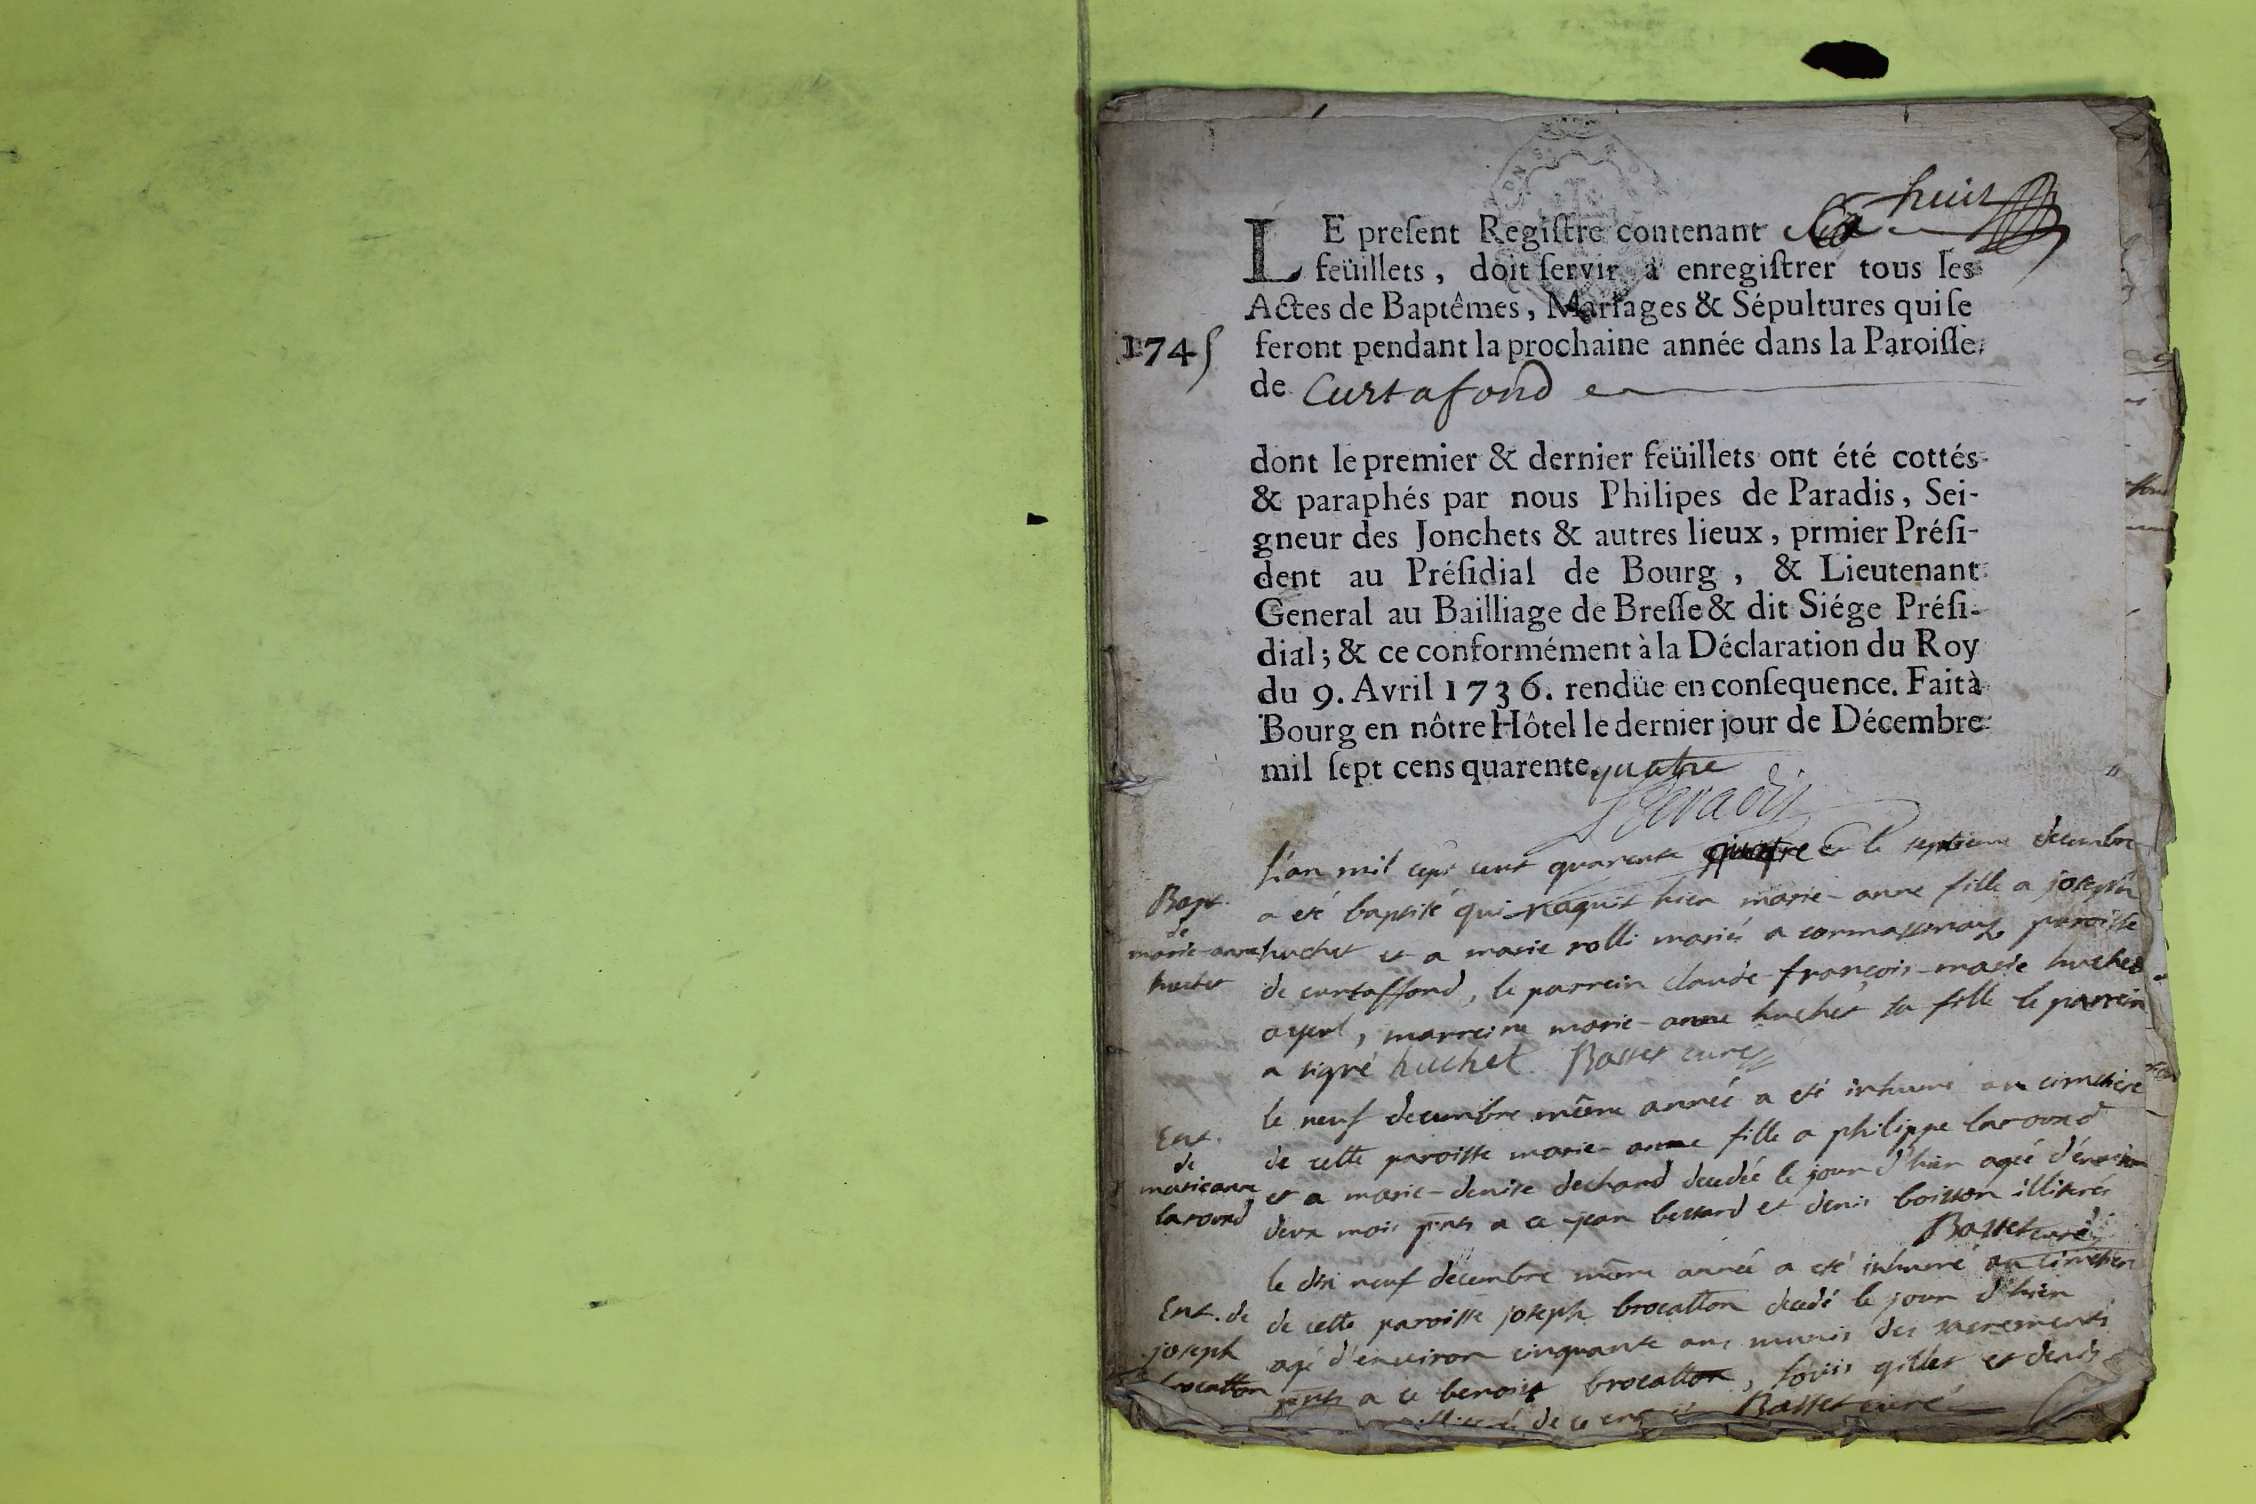 huit
LE preſent Regiſtre contenant
feüillets, doit ſervir à enregiſtrer tous les
Actes de Baptêmes, Mariages & Sépultures qui ſe
1745 feront pendant la prochaine année dans la Paroiſſe
de Curtafond
dont le premier & dernier feüillets ont été cottés
& paraphés par nous Philipes de Paradis, Sei-
gneur des Jonchets & autres lieux, prmier Préſi-
dent au Préſidial de Bourg, & Lieutenant
General au Bailliage de Breſſe & dit Siége Préſi-
dial; & ce conformément à la Déclaration du Roy
du 9. Avril 1736. rendüe en conſequence. Fait à
Bourg en nôtre Hôtel le dernier jour de Décembre
mil ſept cens quarente quatre
Deparadis
Bapt.
de
marie-anne
huchet
L'an mil sept cent quarente quatre et le septieme decembre
a eté baptisé qui naquit hier marie-anne fille a joseph
huchet et a marie rolli mariés a paroisse
de curtaffond, le parrein claude-françois-marie huchet
ayeul, marreine marie-anne huchet sa fille le parrein
a signé huchet. Basset curé
Ent.
de
marieanne
laround
le neuf decembre même année a eté inhumé au cimetiere
de cette paroisse marie-anne fille a philippe laround
et a marie-denise dechard decedée le jour d'hier agée d'environ
deux mois pnts a ce jean bessard et denis boisson illiterés
Basset curé
Ent. de
joseph
brocatton
le dix neuf decembre même année a eté inhumé au cimetiere
de cette paroisse joseph brocatton decedé le jour d'hier
agé d'environ cinquante ans munis des sacrements
pnts a ce benoist brocatton, louis gillet et denis
illiterés de ce Basset curé